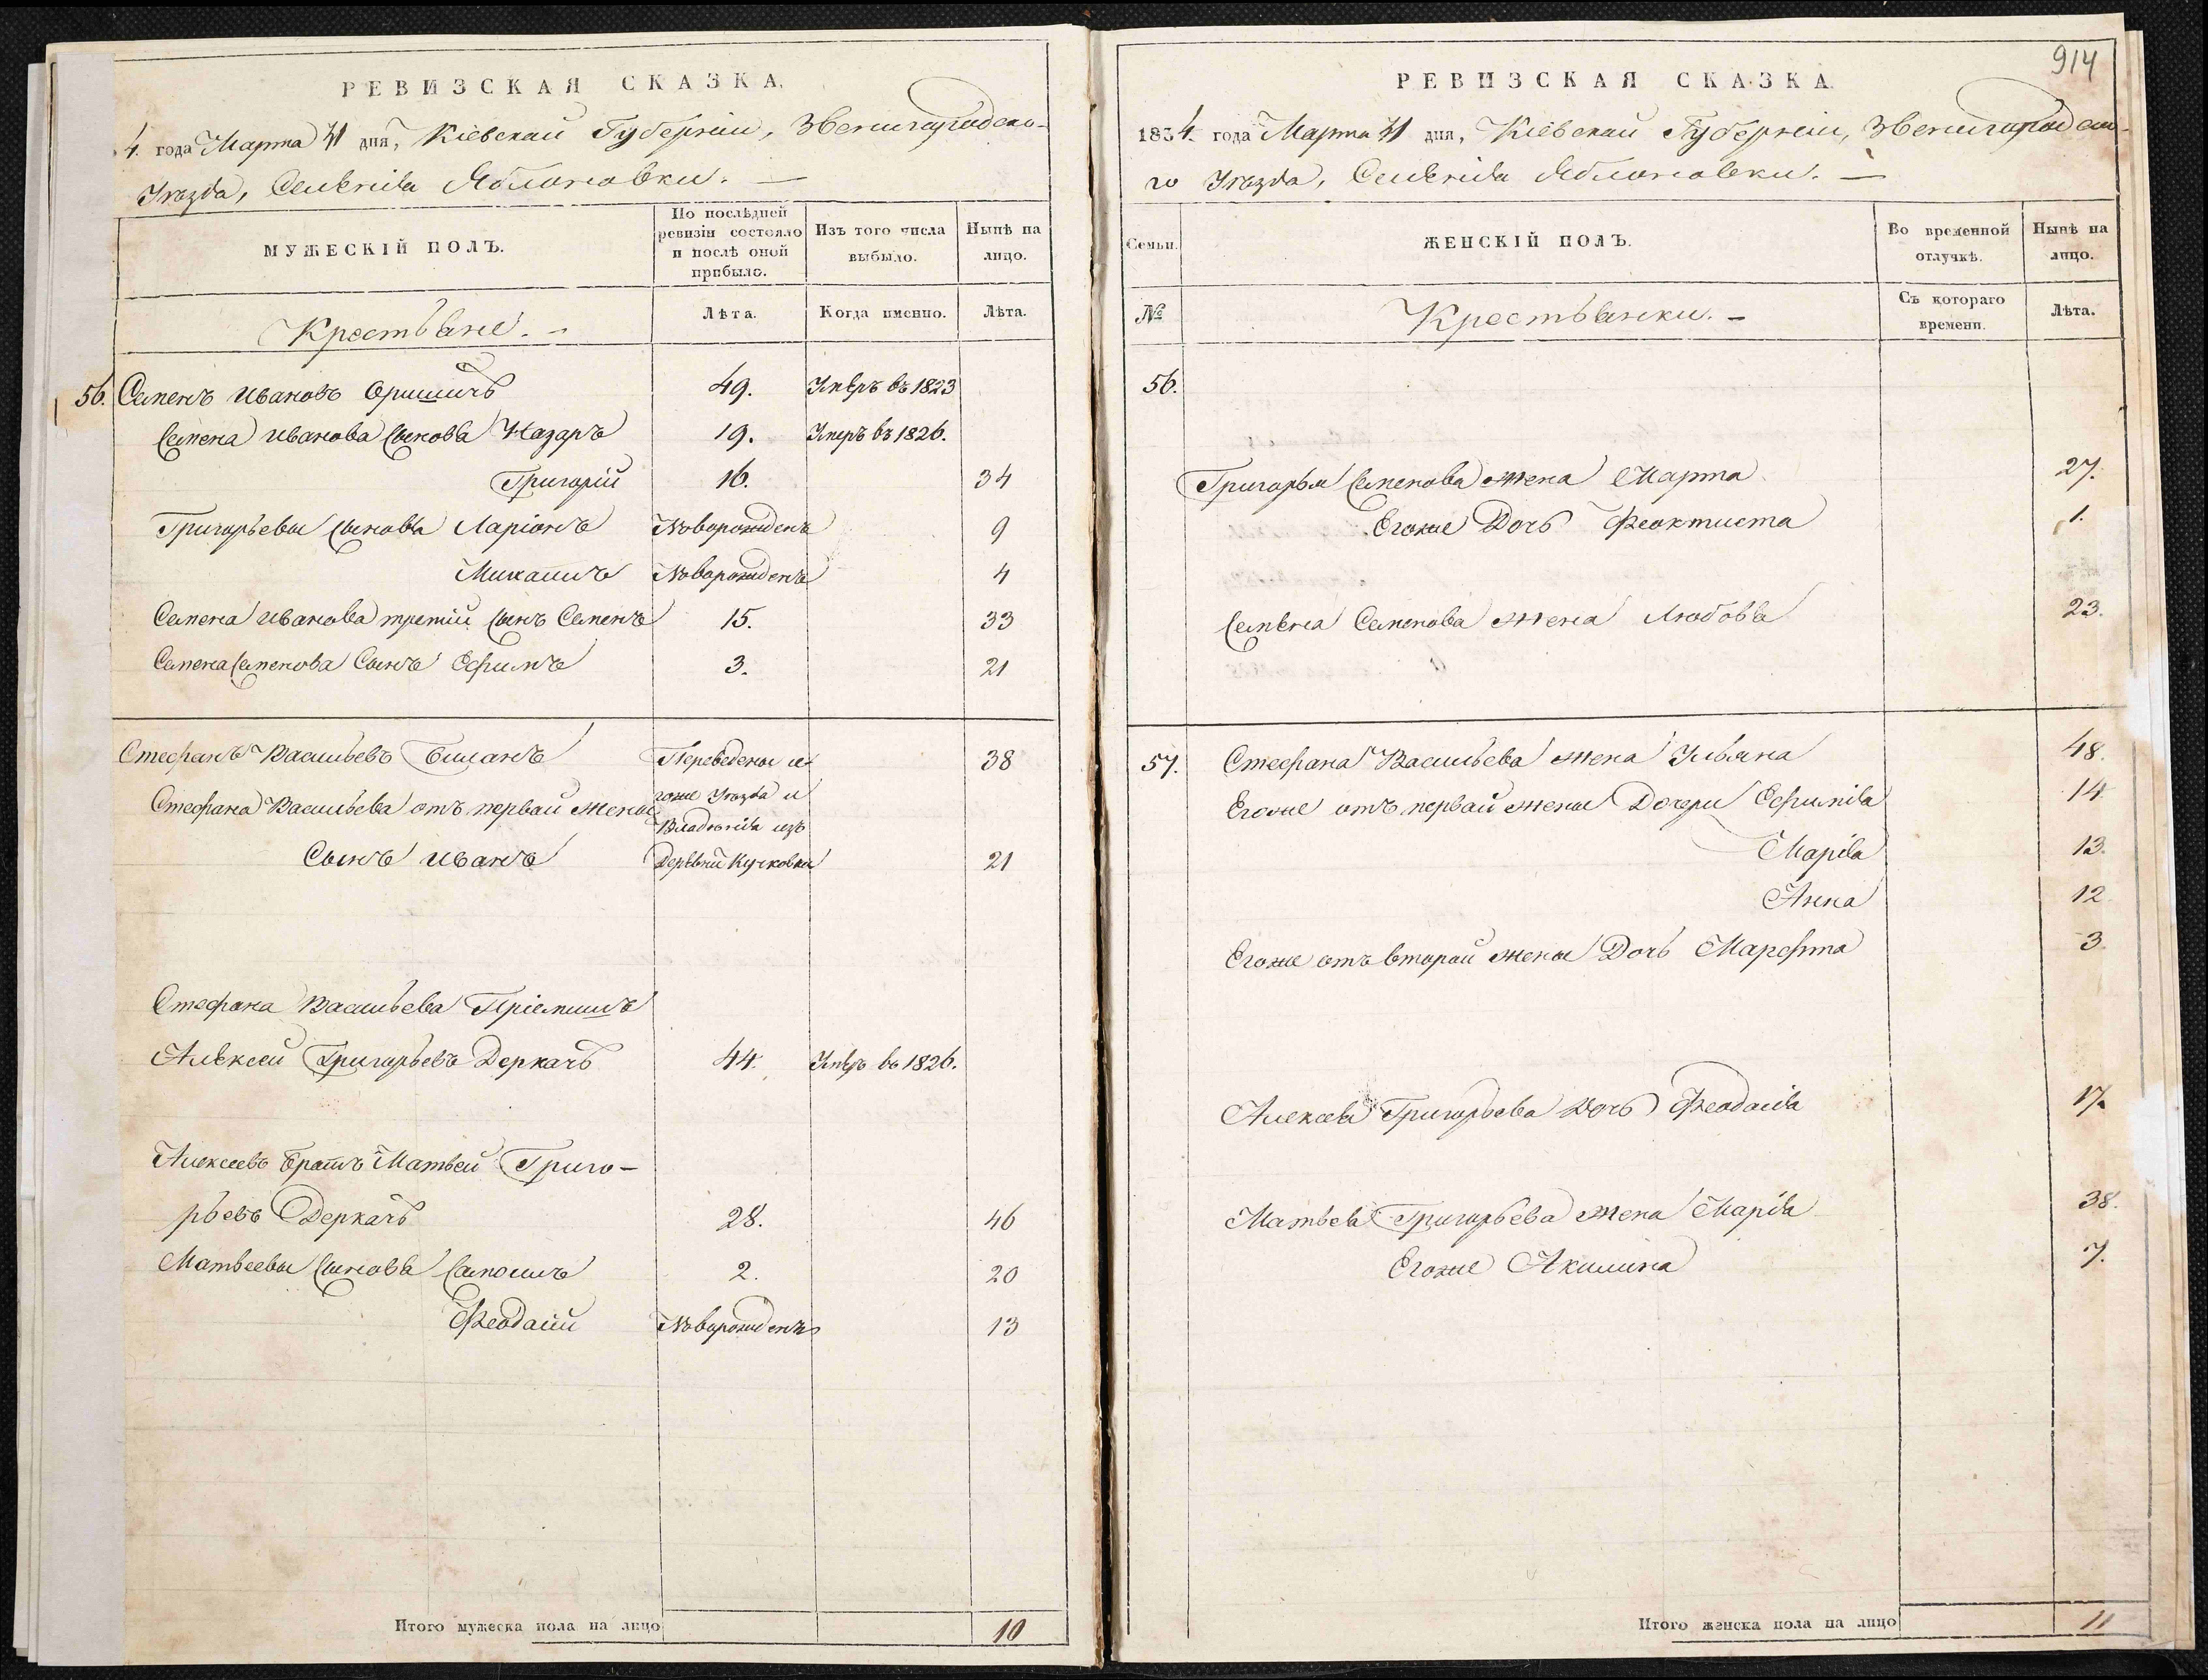 РЕВИЗСКАЯ СКАЗКА.
4. года Марта 31 дня, Кіевской Губерніи, Звенигородска-
Уѣзда, Селенія Яблоновки. —
МУЖЕСКІЙ ПОЛЪ.
По послѣдней ревизіи состояло и послѣ оной прибыло.
Изъ того числа выбыло.
Нынѣ на лицо.
Крестьяне. -
Лѣта.
Когда именно.
Лѣта.
56. Семенъ Ивановъ 49. Умеръ въ 1823
Семена Иванова Сыновья Назаръ 19. Умеръ въ 1826.
Григорій 16. 34
Григорьевы Сыновья Ларіонъ Новорожденъ 9
Михаилъ Новорожденъ 4
Семена Иванова третій Сынъ Семенъ 15. 33
Семена Семенова Сынъ Ефимъ 3. 21
Стефанъ Васильевъ Переведены из 38
Стефана Васильева отъ первой жены гоже Уѣзда и
Владѣнія изъ
Сынъ Иванъ Деревни Кучковки 21
Стефана Васильева Пріемышъ
Алексей Григорьевъ Деркачъ 44. Умеръ въ 1826.
Алексеевъ братъ Матвей Григо-
рьевъ Деркачъ 28. 46
Матвеевы Сыновья Самоилъ 2. 20
Феодосій Новорожденъ 13
Итого мужеска пола на лицо 10
914
РЕВИЗСКАЯ СКАЗКА.
1834. года Марта 31 дня, Кіевской Губерніи, Звенигородска-
го Уѣзда, Селенія Яблоновки. —
Семьи.
ЖЕНСКІЙ ПОЛЪ.
Во временной отлучкѣ.
Нынѣ на лицо.
№
Крестьянки. -
Съ котораго времени.
Лѣта.
56.
Григорья Семенова жена Марта 27.
Егоже Дочь Феоктиста 1.
Семена Семенова жена Любовь 23.
57. Стефана Васильева жена Ульяна 48.
Егоже отъ первой жены Дочери Ефимія 14
Марія 13.
Анна 12
Егоже отъ второй жены Дочь Марфта 3.
Алексея Григорьева Дочь Феодосія 17.
Матвея Григорьева жена Марія 38.
Егоже Акилина 7.
Итого женска пола на лицо 11